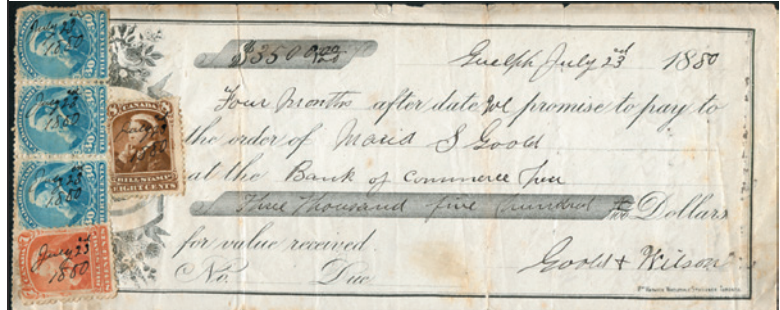 July 23
1880
July 23
1880
July 23
1880
July 23
1880
CANADA
BILL STAMP
EIGHT CENTS
July 23
1880
$3500 00/100
Guelph July 23rd 1880
Four months after date We promise to pay to
the order of Maria S Goold
at the Bank of Commerce here
Three Thousand five hundred 00/100 Dollars
for value received.
No. Due
Goold & Wilson